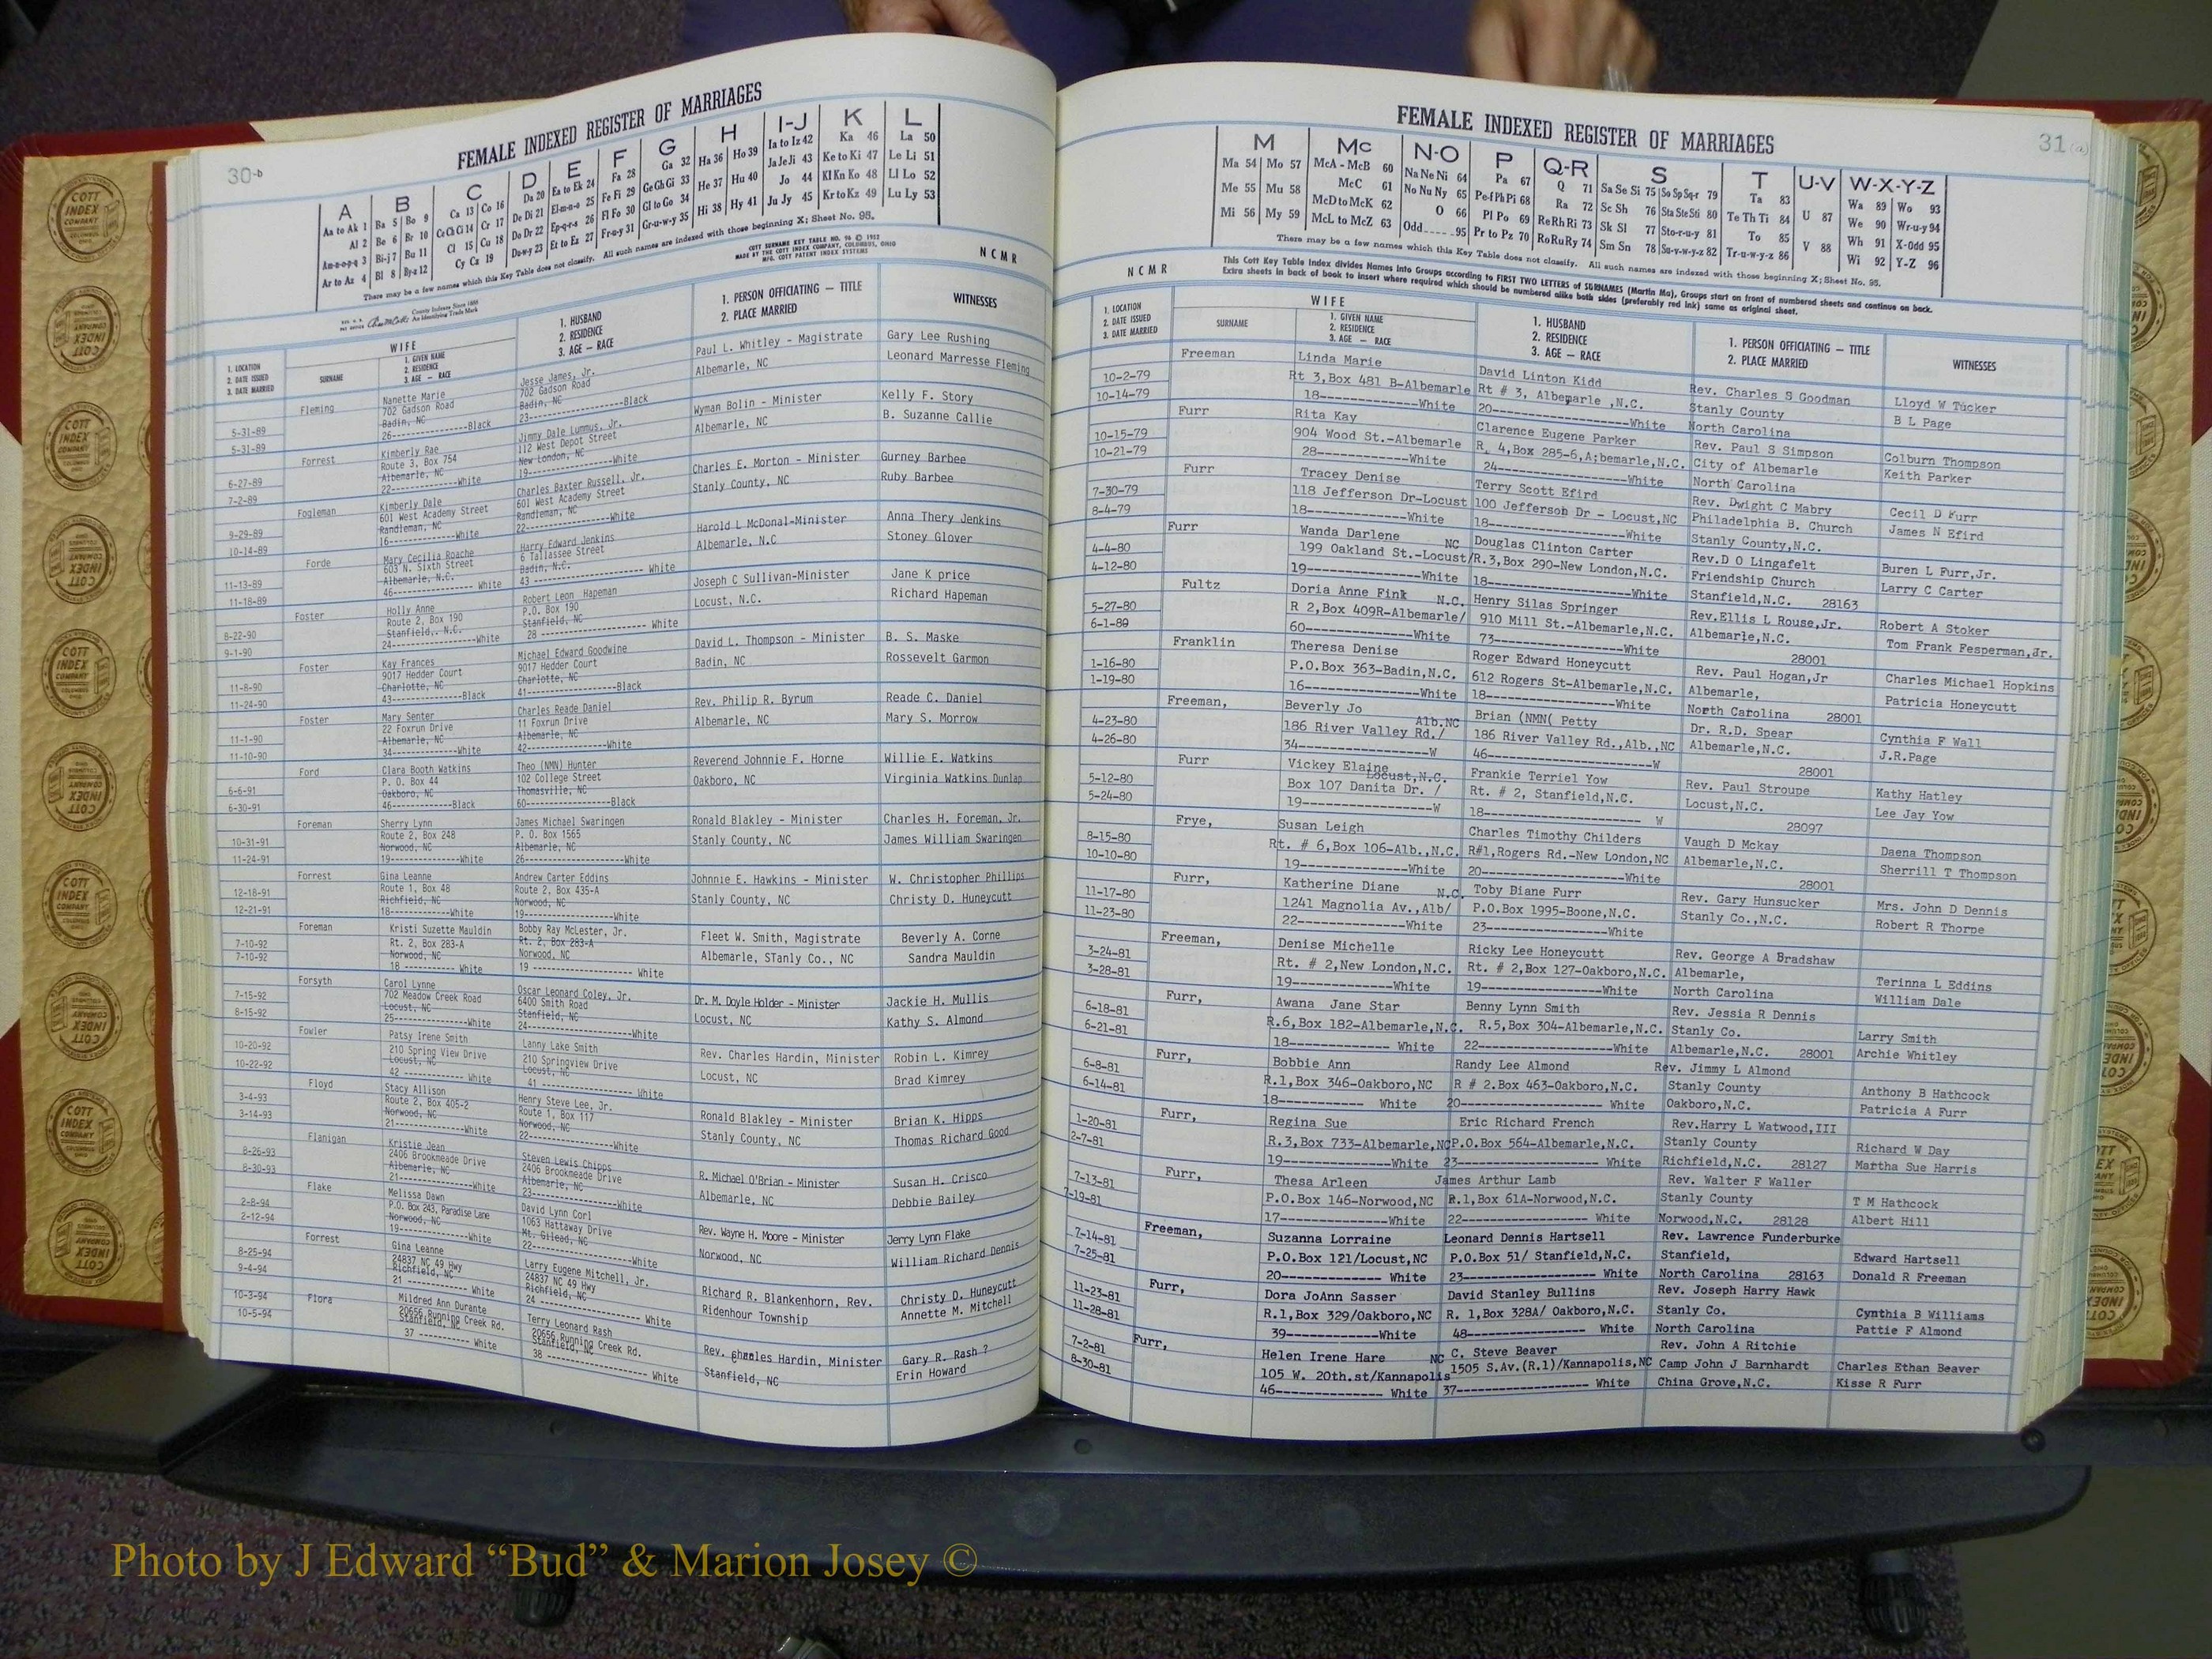 30-b
FEMALE INDEXED REGISTER OF MARRIAGES
A B C D E F G H I-J K L
Aa to Ak 1 Ba 5 Bo 9 Ca 13 Co 16 Da 20 Ea to Ek 24 Fa 28 Ga 32 Ha 36 Ho 39 Ia to Iz 42 Ka 46 La 50
Al 2 Be 6 Br 10 Ce Ch Ci 14 Cr 17 De Di 21 El-m-n-o 25 Fe Fi 29 Ge Gh Gi 33 He 37 Hu 40 Ja Je Ji 43 Ke to Ki 47 Le Li 51
Am-n-o-p-q 3 Bi-j 7 Bu 11 Cl 15 Cu 18 Do Dr 22 Ep-q-r-s 26 Fl Fo 30 Gl to Go 34 Hi 38 Hy 41 Jo 44 Kl Kn Ko 48 Ll Lo 52
Ar to Az 4 Bl 8 By-z 12 Cy Cz 19 Du-w-y 23 Et to Ez 27 Fr-u-y 31 Gr-u-w-y 35 Ju Jy 45 Kr to Kz 49 Lu Ly 53
There may be a few names which this Key Table does not classify. All such names are indexed with those beginning X; Sheet No. 95.
COTT SURNAME KEY TABLE NO. 96 © 1952
MADE BY THE COTT INDEX COMPANY, COLUMBUS, OHIO
MFG. COTT PATENT INDEX SYSTEMS
County Indexes Since 1888
An Identifying Trade Mark
NCMR
1. LOCATION
2. DATE ISSUED
3. DATE MARRIED
WIFE
SURNAME
1. GIVEN NAME
2. RESIDENCE
3. AGE — RACE
1. HUSBAND
2. RESIDENCE
3. AGE — RACE
1. PERSON OFFICIATING — TITLE
2. PLACE MARRIED
WITNESSES
Fleming Nanette Marie Jesse James, Jr. Paul L. Whitley - Magistrate Gary Lee Rushing
702 Gadson Road 702 Gadson Road Albemarle, NC Leonard Marresse Fleming
5-31-89 Badin, NC Badin, NC
5-31-89 26---Black 23---Black
Forrest Kimberly Rae Jimmy Dale Lummus, Jr. Wyman Bolin - Minister Kelly F. Story
Route 3, Box 754 112 West Depot Street Albemarle, NC B. Suzanne Callie
6-27-89 Albemarle, NC New London, NC
7-2-89 22---White 19---White
Fogleman Kimberly Dale Charles Baxter Russell, Jr. Charles E. Morton - Minister Gurney Barbee
601 West Academy Street 601 West Academy Street Stanly County, NC Ruby Barbee
9-29-89 Randleman, NC Randleman, NC
10-14-89 16---White 22---White
Forde Mary Cecilia Roache Harry Edward Jenkins Harold L McDonal-Minister Anna Thery Jenkins
603 N. Sixth Street 6 Tallassee Street Albemarle, N.C Stoney Glover
11-13-89 Albemarle, N.C. Badin, N.C.
11-18-89 46--- White 43 --- White
Foster Holly Anne Robert Leon Hapeman Joseph C Sullivan-Minister Jane K price
Route 2, Box 190 P.O. Box 190 Locust, N.C. Richard Hapeman
8-22-90 Stanfield, N.C. Stanfield, NC
9-1-90 24---White 28 --- White
Foster Kay Frances Michael Edward Goodwine David L. Thompson - Minister B. S. Maske
9017 Hedder Court 9017 Hedder Court Badin, NC Rossevelt Garmon
11-8-90 Charlotte, NC Charlotte, NC
11-24-90 43---Black 41---Black
Foster Mary Senter Charles Reade Daniel Rev. Philip R. Byrum Reade C. Daniel
22 Foxrun Drive 11 Foxrun Drive Albemarle, NC Mary S. Morrow
11-1-90 Albemarle, NC Albemarle, NC
11-10-90 34---White 42---White
Ford Clara Booth Watkins Theo (NMN) Hunter Reverend Johnnie F. Horne Willie E. Watkins
P. O. Box 44 102 College Street Oakboro, NC Virginia Watkins Dunlap
6-6-91 Oakboro, NC Thomasville, NC
6-30-91 46---Black 60---Black
Foreman Sherry Lynn James Michael Swaringen Ronald Blakley - Minister Charles H. Foreman, Jr.
Route 2, Box 248 P. O. Box 1565 Stanly County, NC James William Swaringen
10-31-91 Norwood, NC Albemarle, NC
11-24-91 19---White 26---White
Forrest Gina Leanne Andrew Carter Eddins Johnnie E. Hawkins - Minister W. Christopher Phillips
Route 1, Box 48 Route 2, Box 435-A Stanly County, NC Christy D. Huneycutt
12-18-91 Richfield, NC Norwood, NC
12-21-91 18---White 19---White
Foreman Kristi Suzette Mauldin Bobby Ray McLester, Jr. Fleet W. Smith, Magistrate Beverly A. Corne
7-10-92 Rt. 2, Box 283-A Rt. 2, Box 283-A Albemarle, STanly Co., NC Sandra Mauldin
7-10-92 Norwood, NC Norwood, NC
18 --- White 19 --- White
Forsyth Carol Lynne Oscar Leonard Coley, Jr. Dr. M. Doyle Holder - Minister Jackie H. Mullis
7-15-92 702 Meadow Creek Road 6400 Smith Road Locust, NC Kathy S. Almond
8-15-92 Locust, NC Stanfield, NC
25---White 24---White
Fowler Patsy Irene Smith Lanny Lake Smith Rev. Charles Hardin, Minister Robin L. Kimrey
10-20-92 210 Spring View Drive 210 Springview Drive Locust, NC Brad Kimrey
10-22-92 Locust, NC Locust, NC
42 --- White 41 --- White
Floyd Stacy Allison Henry Steve Lee, Jr. Ronald Blakley - Minister Brian K. Hipps
3-4-93 Route 2, Box 405-2 Route 1, Box 117 Stanly County, NC Thomas Richard Good
3-14-93 Norwood, NC Norwood, NC
21---White 22---White
Flanigan Kristie Jean Steven Lewis Chipps R. Michael O'Brian - Minister Susan H. Crisco
8-26-93 2406 Brookmeade Drive 2406 Brookmeade Drive Albemarle, NC Debbie Bailey
8-30-93 Albemarle, NC Albemarle, NC
21---White 23---White
Flake Melissa Dawn David Lynn Corl Rev. Wayne H. Moore - Minister Jerry Lynn Flake
2-8-94 P.O. Box 243, Paradise Lane 1063 Hattaway Drive Norwood, NC William Richard Dennis
2-12-94 Norwood, NC Mt. Gilead, NC
19---White 22---White
Forrest Gina Leanne Larry Eugene Mitchell, Jr. Richard R. Blankenhorn, Rev. Christy D. Huneycutt
8-25-94 24837 NC 49 Hwy 24837 NC 49 Hwy Ridenhour Township Annette M. Mitchell
9-4-94 Richfield, NC Richfield, NC
21 --- White 24 --- White
10-3-94 Flora Mildred Ann Durante Terry Leonard Rash Rev. Charles Hardin, Minister Gary R. Rash ?
10-5-94 20656 Running Creek Rd. 20656 Running Creek Rd. Stanfield, NC Erin Howard
Stanfield, NC Stanfield, NC
37 --- White 38 --- White
31 (a)
FEMALE INDEXED REGISTER OF MARRIAGES
M Mc N-O P Q-R S T U-V W-X-Y-Z
Ma 54 Mo 57 McA - McB 60 Na Ne Ni 64 Pa 67 Q 71 Sa Se Si 75 So Sp Sq-r 79 Ta 83 U 87 Wa 89 Wo 93
Me 55 Mu 58 McC 61 No Nu Ny 65 Pe-f Ph Pi 68 Ra 72 Sc Sh 76 Sta Ste Sti 80 Te Th Ti 84 V 88 We 90 Wr-u-y 94
Mi 56 My 59 McD to McK 62 O 66 Pl Po 69 Re Rh Ri 73 Sk Sl 77 Sto-r-u-y 81 To 85 Wh 91 X-Odd 95
McL to McZ 63 Odd 95 Pr to Pz 70 Ro Ru Ry 74 Sm Sn 78 Su-v-w-y-z 82 Tr-u-w-y-z 86 Wi 92 Y-Z 96
There may be a few names which this Key Table does not classify. All such names are indexed with those beginning X; Sheet No. 95.
This Cott Key Table Index divides Names into Groups according to FIRST TWO LETTERS of SURNAMES (Martin Ma), Groups start on front of numbered sheets and continue on back.
Extra sheets in back of book to insert where required which should be numbered alike both sides (preferably red ink) same as original sheet.
NCMR
1. LOCATION
2. DATE ISSUED
3. DATE MARRIED
WIFE
SURNAME
1. GIVEN NAME
2. RESIDENCE
3. AGE — RACE
1. HUSBAND
2. RESIDENCE
3. AGE — RACE
1. PERSON OFFICIATING — TITLE
2. PLACE MARRIED
WITNESSES
Freeman Linda Marie David Linton Kidd Rev. Charles S Goodman Lloyd W Tucker
10-2-79 Rt 3,Box 481 B-Albemarle Rt # 3, Albemarle ,N.C. Stanly County B L Page
10-14-79 18---White 20---White North Carolina
Furr Rita Kay Clarence Eugene Parker Rev. Paul S Simpson Colburn Thompson
10-15-79 904 Wood St.-Albemarle R. 4,Box 285-6,A;bemarle,N.C. City of Albemarle Keith Parker
10-21-79 28---White 24---White North Carolina
Furr Tracey Denise Terry Scott Efird Rev. Dwight C Mabry Cecil D Furr
7-30-79 118 Jefferson Dr-Locust 100 Jefferson Dr - Locust,NC Philadelphia B. Church James N Efird
8-4-79 18---White 18---White Stanly County,N.C.
Furr Wanda Darlene NC Douglas Clinton Carter Rev.D O Lingafelt Buren L Furr,Jr.
4-4-80 199 Oakland St.-Locust/ R.3,Box 290-New London,N.C. Friendship Church Larry C Carter
4-12-80 19---White 18---White Stanfield,N.C. 28163
Fultz Doria Anne Fink N.C. Henry Silas Springer Rev.Ellis L Rouse,Jr. Robert A Stoker
5-27-80 R 2,Box 409R-Albemarle/ 910 Mill St.-Albemarle,N.C. Albemarle,N.C. Tom Frank Fesperman,Jr.
6-1-80 60---White 73---White 28001
Franklin Theresa Denise Roger Edward Honeycutt Rev. Paul Hogan,Jr Charles Michael Hopkins
1-16-80 P.O.Box 363-Badin,N.C. 612 Rogers St-Albemarle,N.C. Albemarle, Patricia Honeycutt
1-19-80 16---White 18---White North Carolina 28001
Freeman, Beverly Jo Alb.NC Brian (NMN( Petty Dr. R.D. Spear Cynthia F Wall
4-23-80 186 River Valley Rd./ 186 River Valley Rd.,Alb.,NC Albemarle,N.C. J.R.Page
4-26-80 34---W 46---W 28001
Furr Vickey Elaine Locust,N.C. Frankie Terriel Yow Rev. Paul Stroupe Kathy Hatley
5-12-80 Box 107 Danita Dr. / Rt. # 2, Stanfield,N.C. Locust,N.C. Lee Jay Yow
5-24-80 19---W 18--- W 28097
Frye, Susan Leigh Charles Timothy Childers Vaugh D Mckay Daena Thompson
8-15-80 Rt. # 6,Box 106-Alb.,N.C. R#1,Rogers Rd.-New London,NC Albemarle,N.C. Sherrill T Thompson
10-10-80 19---White 20---White 28001
Furr, Katherine Diane N.C. Toby Diane Furr Rev. Gary Hunsucker Mrs. John D Dennis
11-17-80 1241 Magnolia Av.,Alb/ P.O.Box 1995-Boone,N.C. Stanly Co.,N.C. Robert R Thorne
11-23-80 22---White 23---White
Freeman, Denise Michelle Ricky Lee Honeycutt Rev. George A Bradshaw Terinna L Eddins
3-24-81 Rt. # 2,New London,N.C. Rt. # 2,Box 127-Oakboro,N.C. Albemarle, William Dale
3-28-81 19---White 19---White North Carolina
Furr, Awana Jane Star Benny Lynn Smith Rev. Jessia R Dennis Larry Smith
6-18-81 R.6,Box 182-Albemarle,N.C. R.5,Box 304-Albemarle,N.C. Stanly Co. Archie Whitley
6-21-81 18--- White 22---White Albemarle,N.C. 28001
Furr, Bobbie Ann Randy Lee Almond Rev. Jimmy L Almond Anthony B Hathcock
6-8-81 R.1,Box 346-Oakboro,NC R # 2.Box 463-Oakboro,N.C. Stanly County Patricia A Furr
6-14-81 18--- White 20--- White Oakboro,N.C.
Furr, Regina Sue Eric Richard French Rev.Harry L Watwood,III Richard W Day
1-20-81 R.3,Box 733-Albemarle,NC P.O.Box 564-Albemarle,N.C. Stanly County Martha Sue Harris
2-7-81 19---White 23--- White Richfield,N.C. 28127
Furr, Thesa Arleen James Arthur Lamb Rev. Walter F Waller T M Hathcock
7-13-81 P.O.Box 146-Norwood,NC R.1,Box 61A-Norwood,N.C. Stanly County Albert Hill
7-19-81 17---White 22--- White Norwood,N.C. 28128
Freeman, Suzanna Lorraine Leonard Dennis Hartsell Rev. Lawrence Funderburke Edward Hartsell
7-14-81 P.O.Box 121/Locust,NC P.O.Box 51/ Stanfield,N.C. Stanfield, Donald R Freeman
7-25-81 20--- White 23--- White North Carolina 28163
Furr, Dora JoAnn Sasser David Stanley Bullins Rev. Joseph Harry Hawk Cynthia B Williams
11-23-81 R.1,Box 329/Oakboro,NC R. 1,Box 328A/ Oakboro,N.C. Stanly Co. Pattie F Almond
11-28-81 39---White 48--- White North Carolina
Furr, Helen Irene Hare NC C. Steve Beaver Rev. John A Ritchie Charles Ethan Beaver
7-2-81 105 W. 20th.st/Kannapolis 1505 S.Av.(R.1)/Kannapolis,NC Camp John J Barnhardt Kisse R Furr
8-30-81 46--- White 37--- White China Grove,N.C.
COTT
INDEX
COMPANY
COLUMBUS
OHIO
Photo by J Edward “Bud” & Marion Josey ©